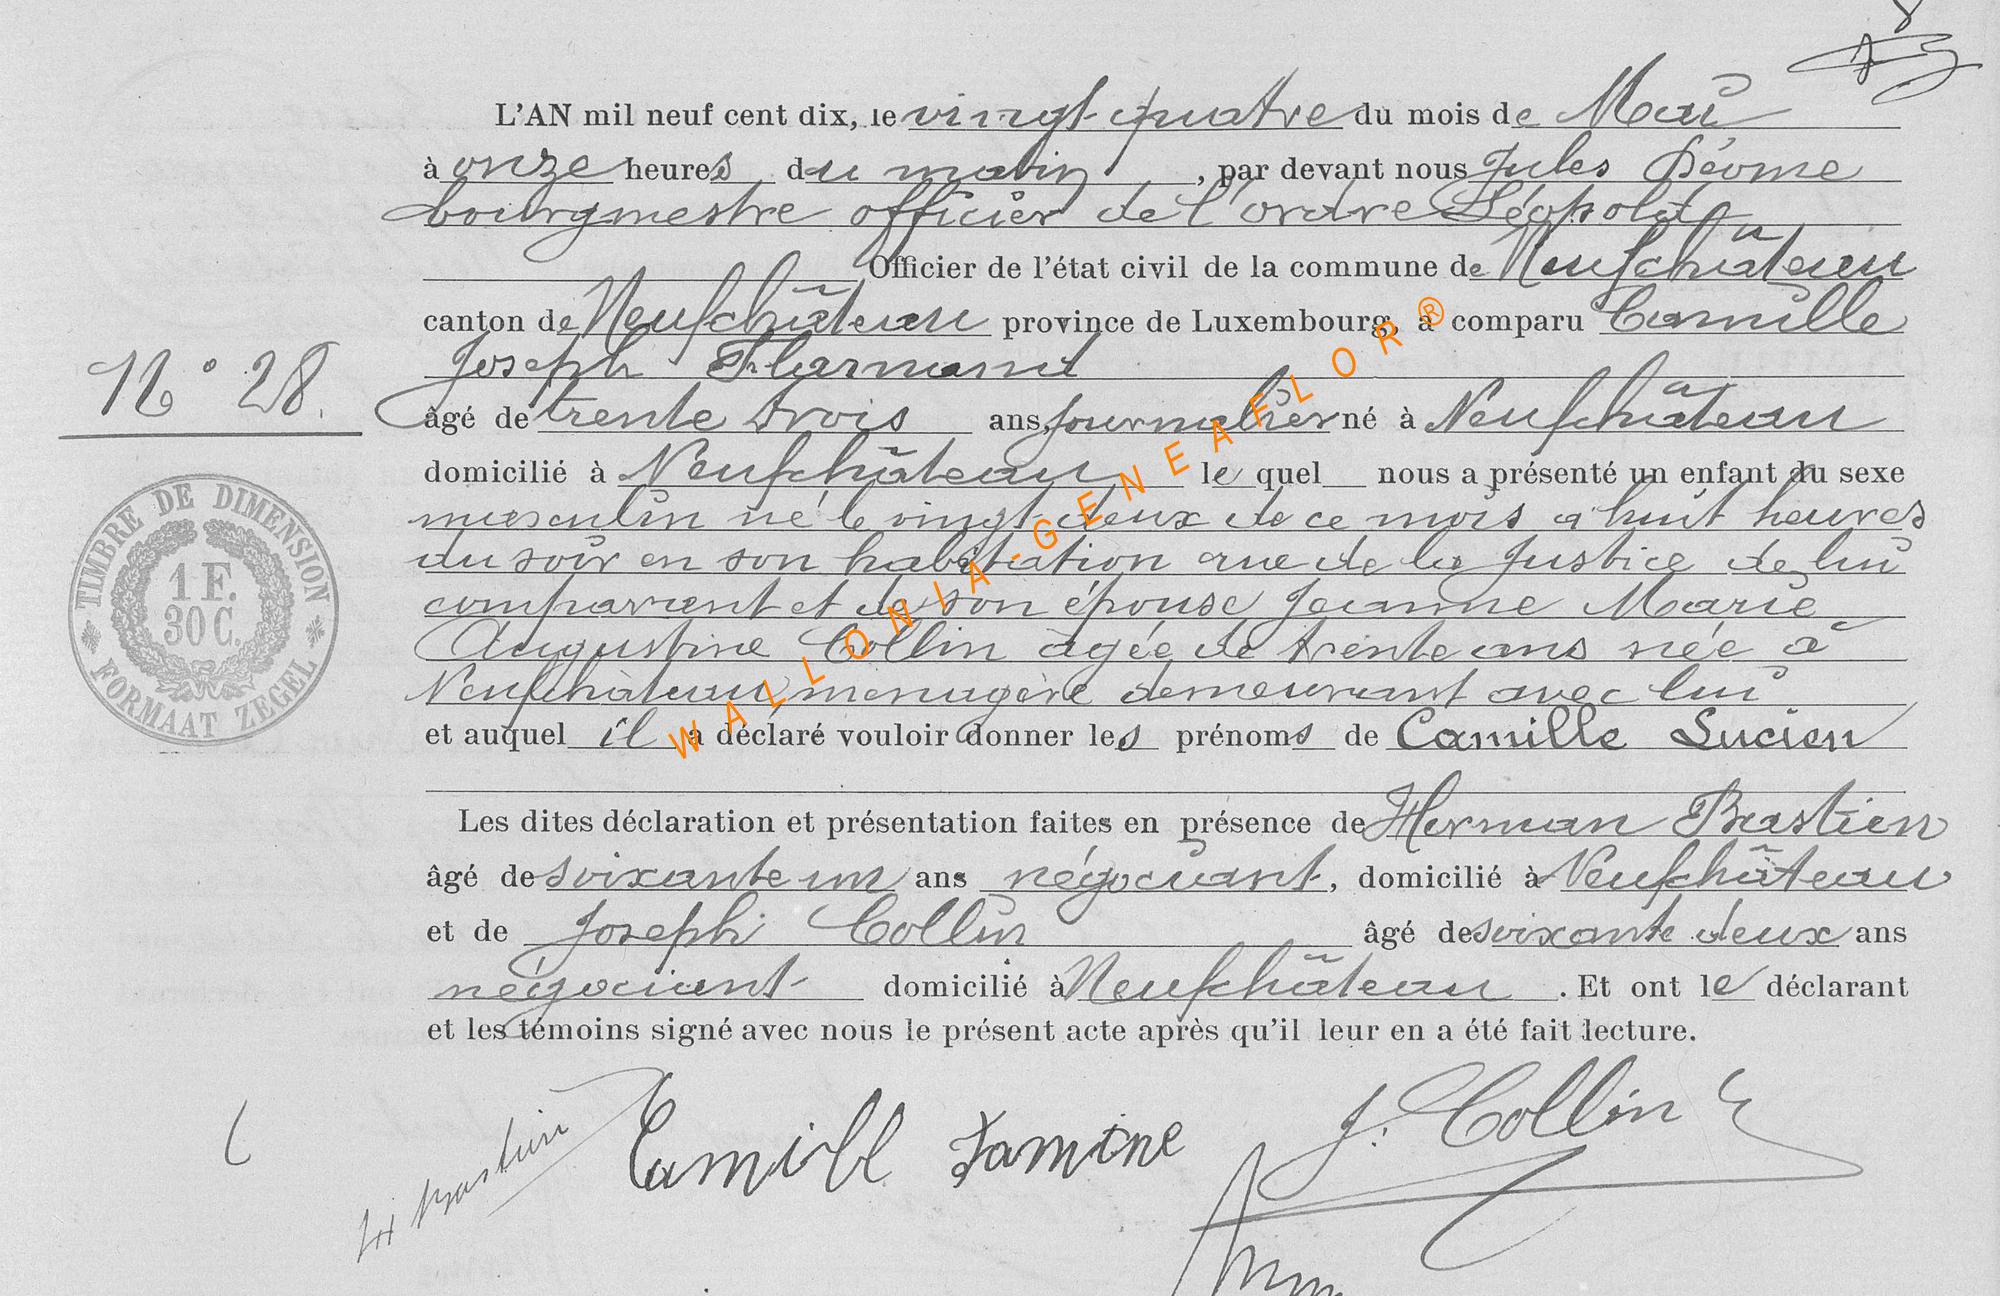 L'AN mil neuf cent dix, le vingt-quatre du mois de Mai
à onze heures du matin, par devant nous Jules
bourgmestre officier de l'ordre Léopold
Officier de l'état civil de la commune de Neufchâteau
canton de Neufchâteau province de Luxembourg, a comparu Camille
Joseph
N° 28.
âgé de trente trois ans, journalier né à Neufchâteau
domicilié à Neufchâteau le quel nous a présenté un enfant du sexe
masculin né le vingt-deux de ce mois à huit heures
du soir en son habitation rue de la Justice de lui
comparant et de son épouse Jeanne Marie
Augustine Collin agée de trente ans née à
Neufchâteau, ménagère demeurant avec lui
et auquel il a déclaré vouloir donner les prénoms de Camille Lucien
TIMBRE DE DIMENSION
1 F.
30 C.
FORMAAT ZEGEL
Les dites déclaration et présentation faites en présence de Herman Bastien
âgé de soixante un ans négociant, domicilié à Neufchâteau
et de Joseph Collin âgé de soixante deux ans
négociant domicilié à Neufchâteau. Et ont le déclarant
et les témoins signé avec nous le présent acte après qu'il leur en a été fait lecture.
H Bastien Camill Famine J. Collin
WALLONIA-GENEAFLOR®